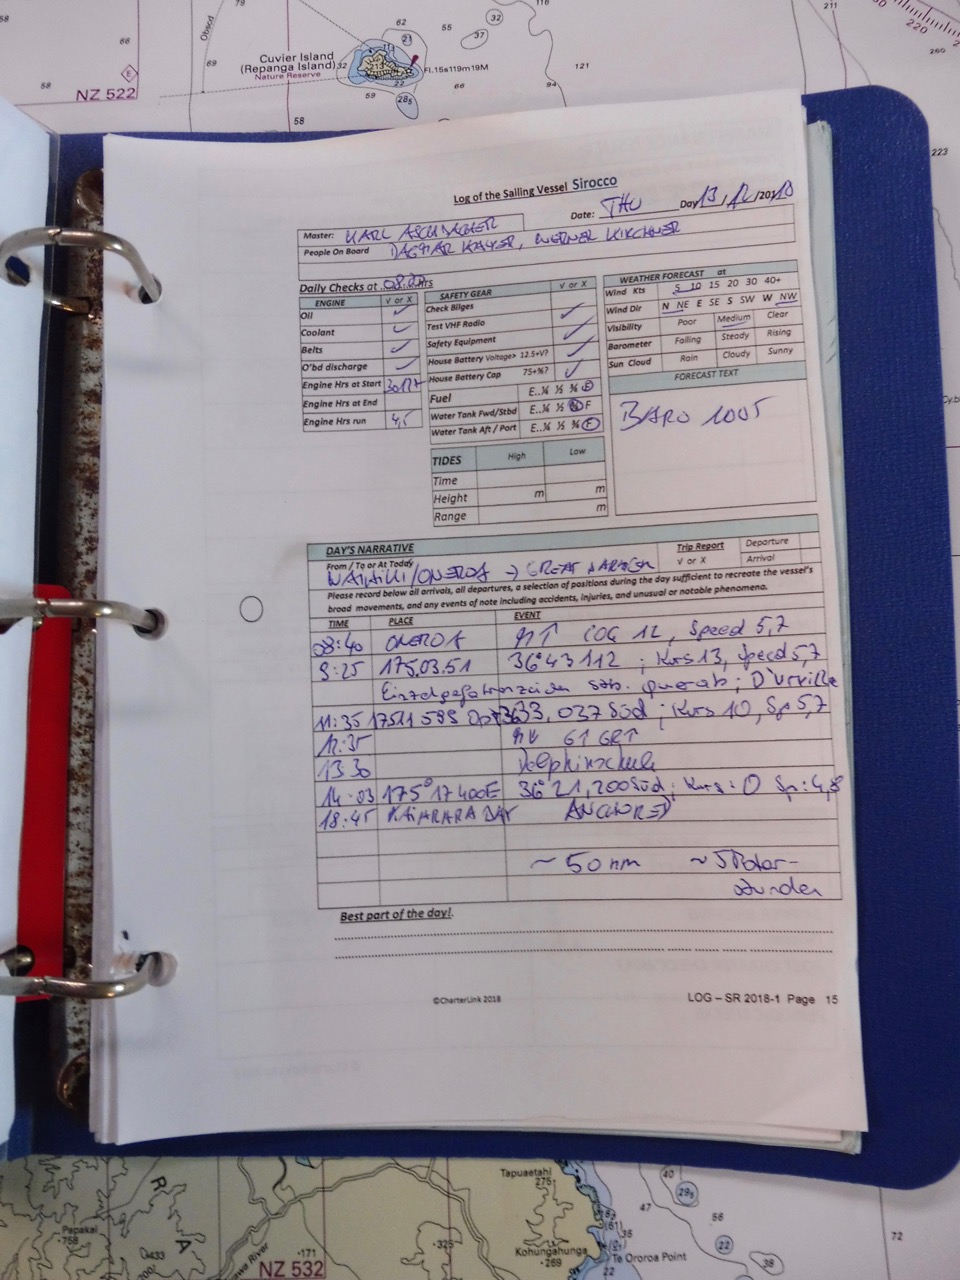 Cuvier Island
(Repanga Island)
Nature Reserve
Fl.15s119m19M
NZ 522
Log of the Sailing Vessel Sirocco
Date: THU Day 13 / 12 /2018
Master: KARL
People On Board DAGMAR KAISER, WERNER KIRCHNER
Daily Checks at 08.00 Hrs
ENGINE √ or X
Oil ✓
Coolant ✓
Belts ✓
O'bd discharge ✓
Engine Hrs at Start
Engine Hrs at End
Engine Hrs run 4,5
SAFETY GEAR √ or X
Check Bilges ✓
Test VHF Radio
Safety Equipment ✓
House Battery Voltage> 12.5+V? ✓
House Battery Cap 75+%? ✓
Fuel E..¼ ½ ¾ F
Water Tank Fwd/Stbd E..¼ ½ ¾ F
Water Tank Aft / Port E..¼ ½ ¾ F
WEATHER FORECAST at
Wind Kts 5 10 15 20 30 40+
Wind Dir N NE E SE S SW W NW
Visibility Poor Medium Clear
Barometer Falling Steady Rising
Sun Cloud Rain Cloudy Sunny
FORECAST TEXT
BARO 1005
TIDES High Low
Time
Height m m
Range m
DAY'S NARRATIVE
From / To or At Today
WAIHIKI/ONEROA → GREAT BARRIER
Trip Report
√ or X
Departure
Arrival
Please record below all arrivals, all departures, a selection of positions during the day sufficient to recreate the vessel's
broad movements, and any events of note including accidents, injuries, and unusual or notable phenomena.
TIME PLACE EVENT
08:40 ONEROA ↑ COG 12, Speed 5,7
9:25 175.03.51 36°43 112 ; Kurs 13, Speed 5,7
Einzelgefahrenzeichen stb. querab; D'Urville
11:35 3633,037 Süd ; Kurs 10, Sp 5,7
12:35
13 30 Delphinschule
14.03 175°17 400E 36°21,200 Süd ; Kurs: 0 Sp: 4,8
18:45 KAIARARA BAY ANCHORED
~ 50 nm ~ 5 Motor-
stunden
Best part of the day!.
©CharterLink 2018
LOG – SR 2018-1 Page 15
Papakai
Tapuaetahi
Kohungahunga
Te Ororoa Point
NZ 532